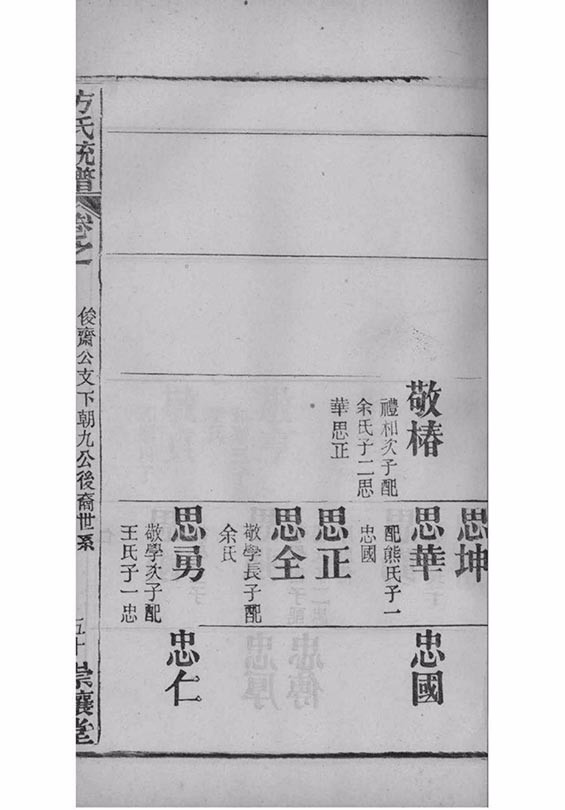 敬椿
禮和次子配
余氏子二思
華思正
思坤
思華
配熊氏子一
忠國
思正
思全
敬學長子配
余氏
思勇
敬學次子配
王氏子一忠
忠國
忠仁
方氏統譜
卷之
俊齋公支下朝九公後裔世系
五十
崇讓堂